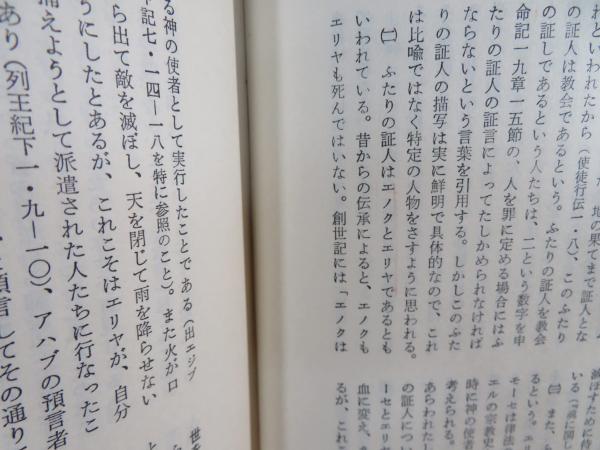 地の果てまで証人とな
れといわれたから（使徒行伝一・八）、このふたり
の証人は教会であるという。ふたりの証人を教会
の証しであるという人たちは、二という数字を申
命記一九章一五節の、人を罪に定める場合にはふ
たりの証人の証言によってたしかめられなければ
ならないという言葉を引用する。しかしこのふた
りの証人の描写は実に鮮明で具体的なので、これ
は比喩ではなく特定の人物をさすように思われる。
㈡　ふたりの証人はエノクとエリヤであるとも
いわれている。昔からの伝承によると、エノクも
エリヤも死んではいない。創世記には「エノクは
滅ぼすために待
いる（『眞に関し
㈢　また、
るという。エリ
モーセは律法
エルの宗教史
時に神の使者
考えられる。
あらわれたし
の証人につい
ーセとエリヤ
血に変え、
るが、これこ
る神の使者として実行したことである（出エジプ
記七・一四―一八を特に参照のこと）。また火が口
ら出て敵を滅ぼし、天を閉じて雨を降らせない
うにしたとあるが、これこそはエリヤが、自分
捕えようとして派遣された人たちに行なったこ
あり（列王紀下一・九―一〇）、アハブの預言者
預言してその通り